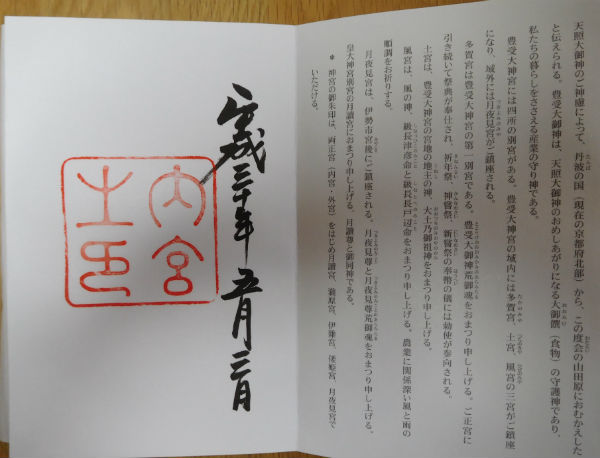 天照大御神のご神慮によって、丹波の国（現在の京都府北部）から、この度会の山田原におむかえした
と伝えられる。豊受大御神は、天照大御神のおめしあがりになる大御饌（食物）の守護神であり、
私たちの暮らしをささえる産業の守り神である。
豊受大神宮には四所の別宮がある。豊受大神宮の域内には多賀宮、土宮、風宮の三宮がご鎮座
になり、域外には月夜見宮がご鎮座される。
多賀宮は豊受大神宮の第一別宮である。豊受大御神荒御魂をおまつり申し上げる。ご正宮に
引き続いて祭典が奉仕され、祈年祭、神嘗祭、新嘗祭の奉幣の儀には勅使が参向される。
土宮は、豊受大神宮の宮地の地主の神、大土乃御祖神をおまつり申し上げる。
風宮は、風の神、級長津彦命と級長戸辺命をおまつり申し上げる。農業に関係深い風と雨の
順調をお祈りする。
月夜見宮は、伊勢市宮後にご鎮座される。月夜見尊と月夜見尊荒御魂をおまつり申し上げる。
皇大神宮別宮の月讀宮におまつり申し上げる、月讀尊と御同神である。
＊ 神宮の御朱印は、両正宮（内宮・外宮）をはじめ月讀宮、瀧原宮、伊雜宮、倭姫宮、月夜見宮で
いただける。
平成三十年五月三日
内宮
之印